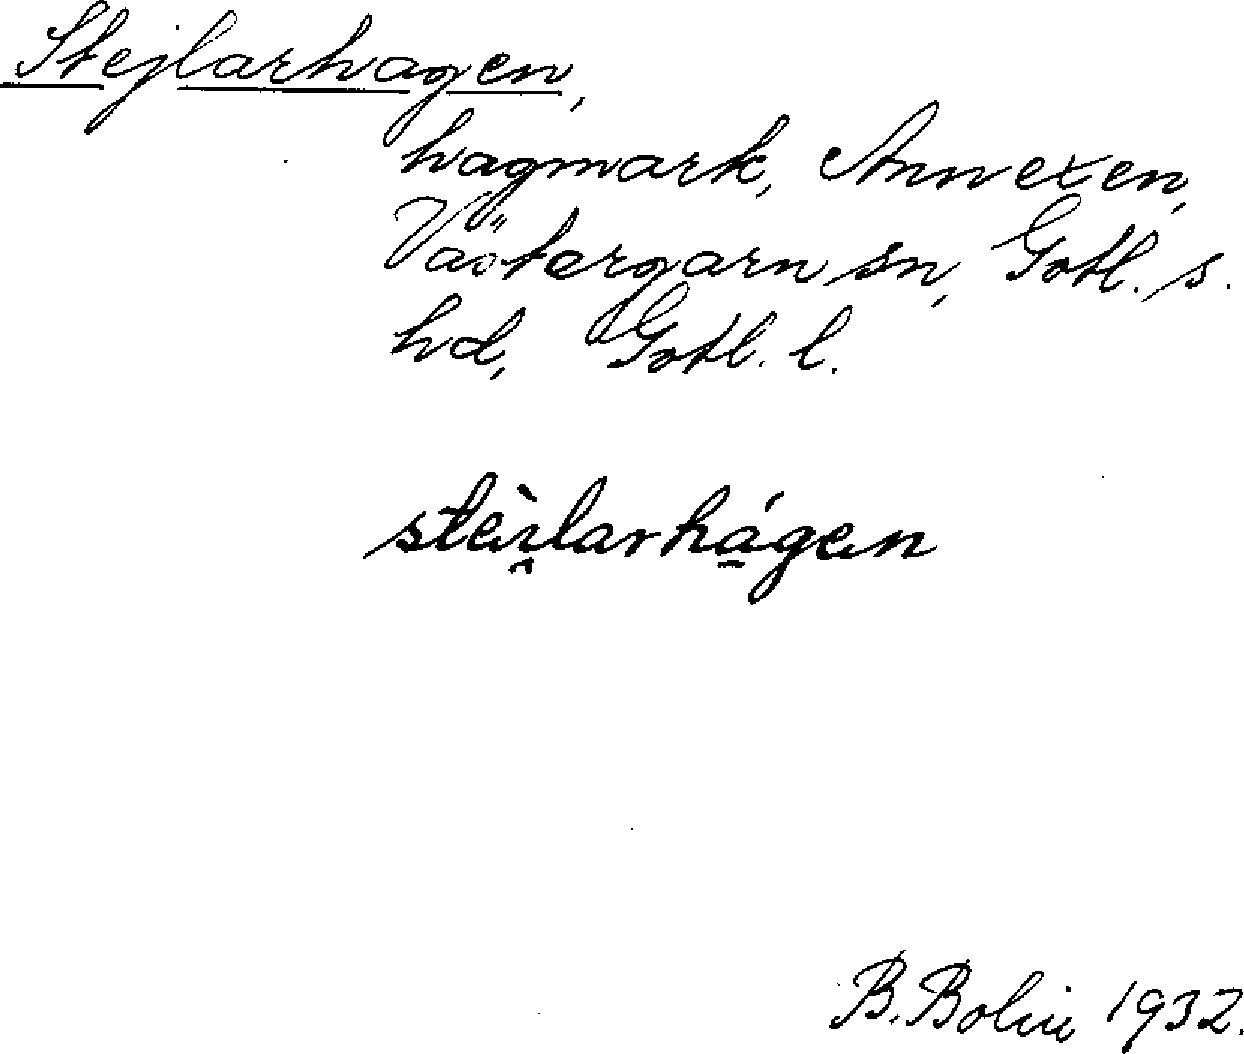 Stejlarhagen,
hagmark, Annexen,
Västergarn sn, Gotl. s.
hd, Gotl. l.
stèi̯larhá̱gen
B. Bolin 1932.